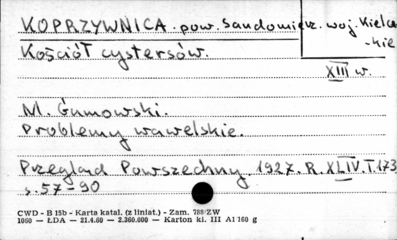 KOPRZYWNICA. pow. Sandomierz. woj. Kielec
-kie
Kościół cystersów.
XIII w.
M. Gumowski.
Problemy wawelskie.
Przegląd Powszechny. 1927. R.XLIV.T.173,
s. 57-90
CWD - B 15b - Karta katal. (z liniat.) - Zam. 788/ZW
1060 — ŁDA — 21.4.60 — 2.360.000 — Karton kl. III A1 160 g